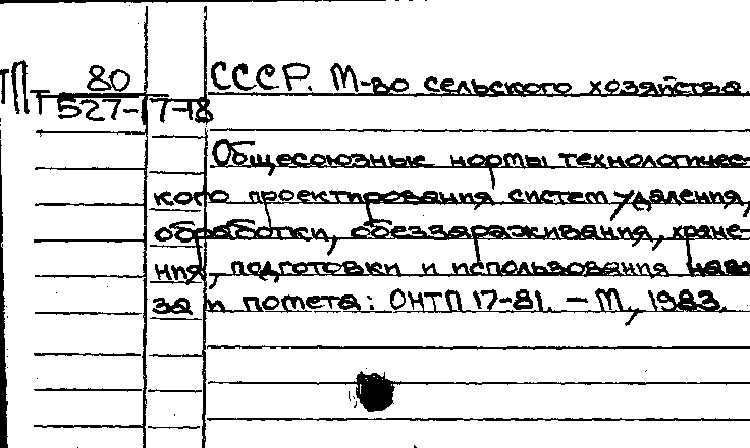 ПТ 80
527-17-18
СССР. М-во сельского хозяйства.
Общесоюзные нормы технологичес-
кого проектирования систем удаления,
обработки, обеззараживания, хране-
ния, подготовки и использования наво
за и помета: ОНТП 17-81. – М., 1983.